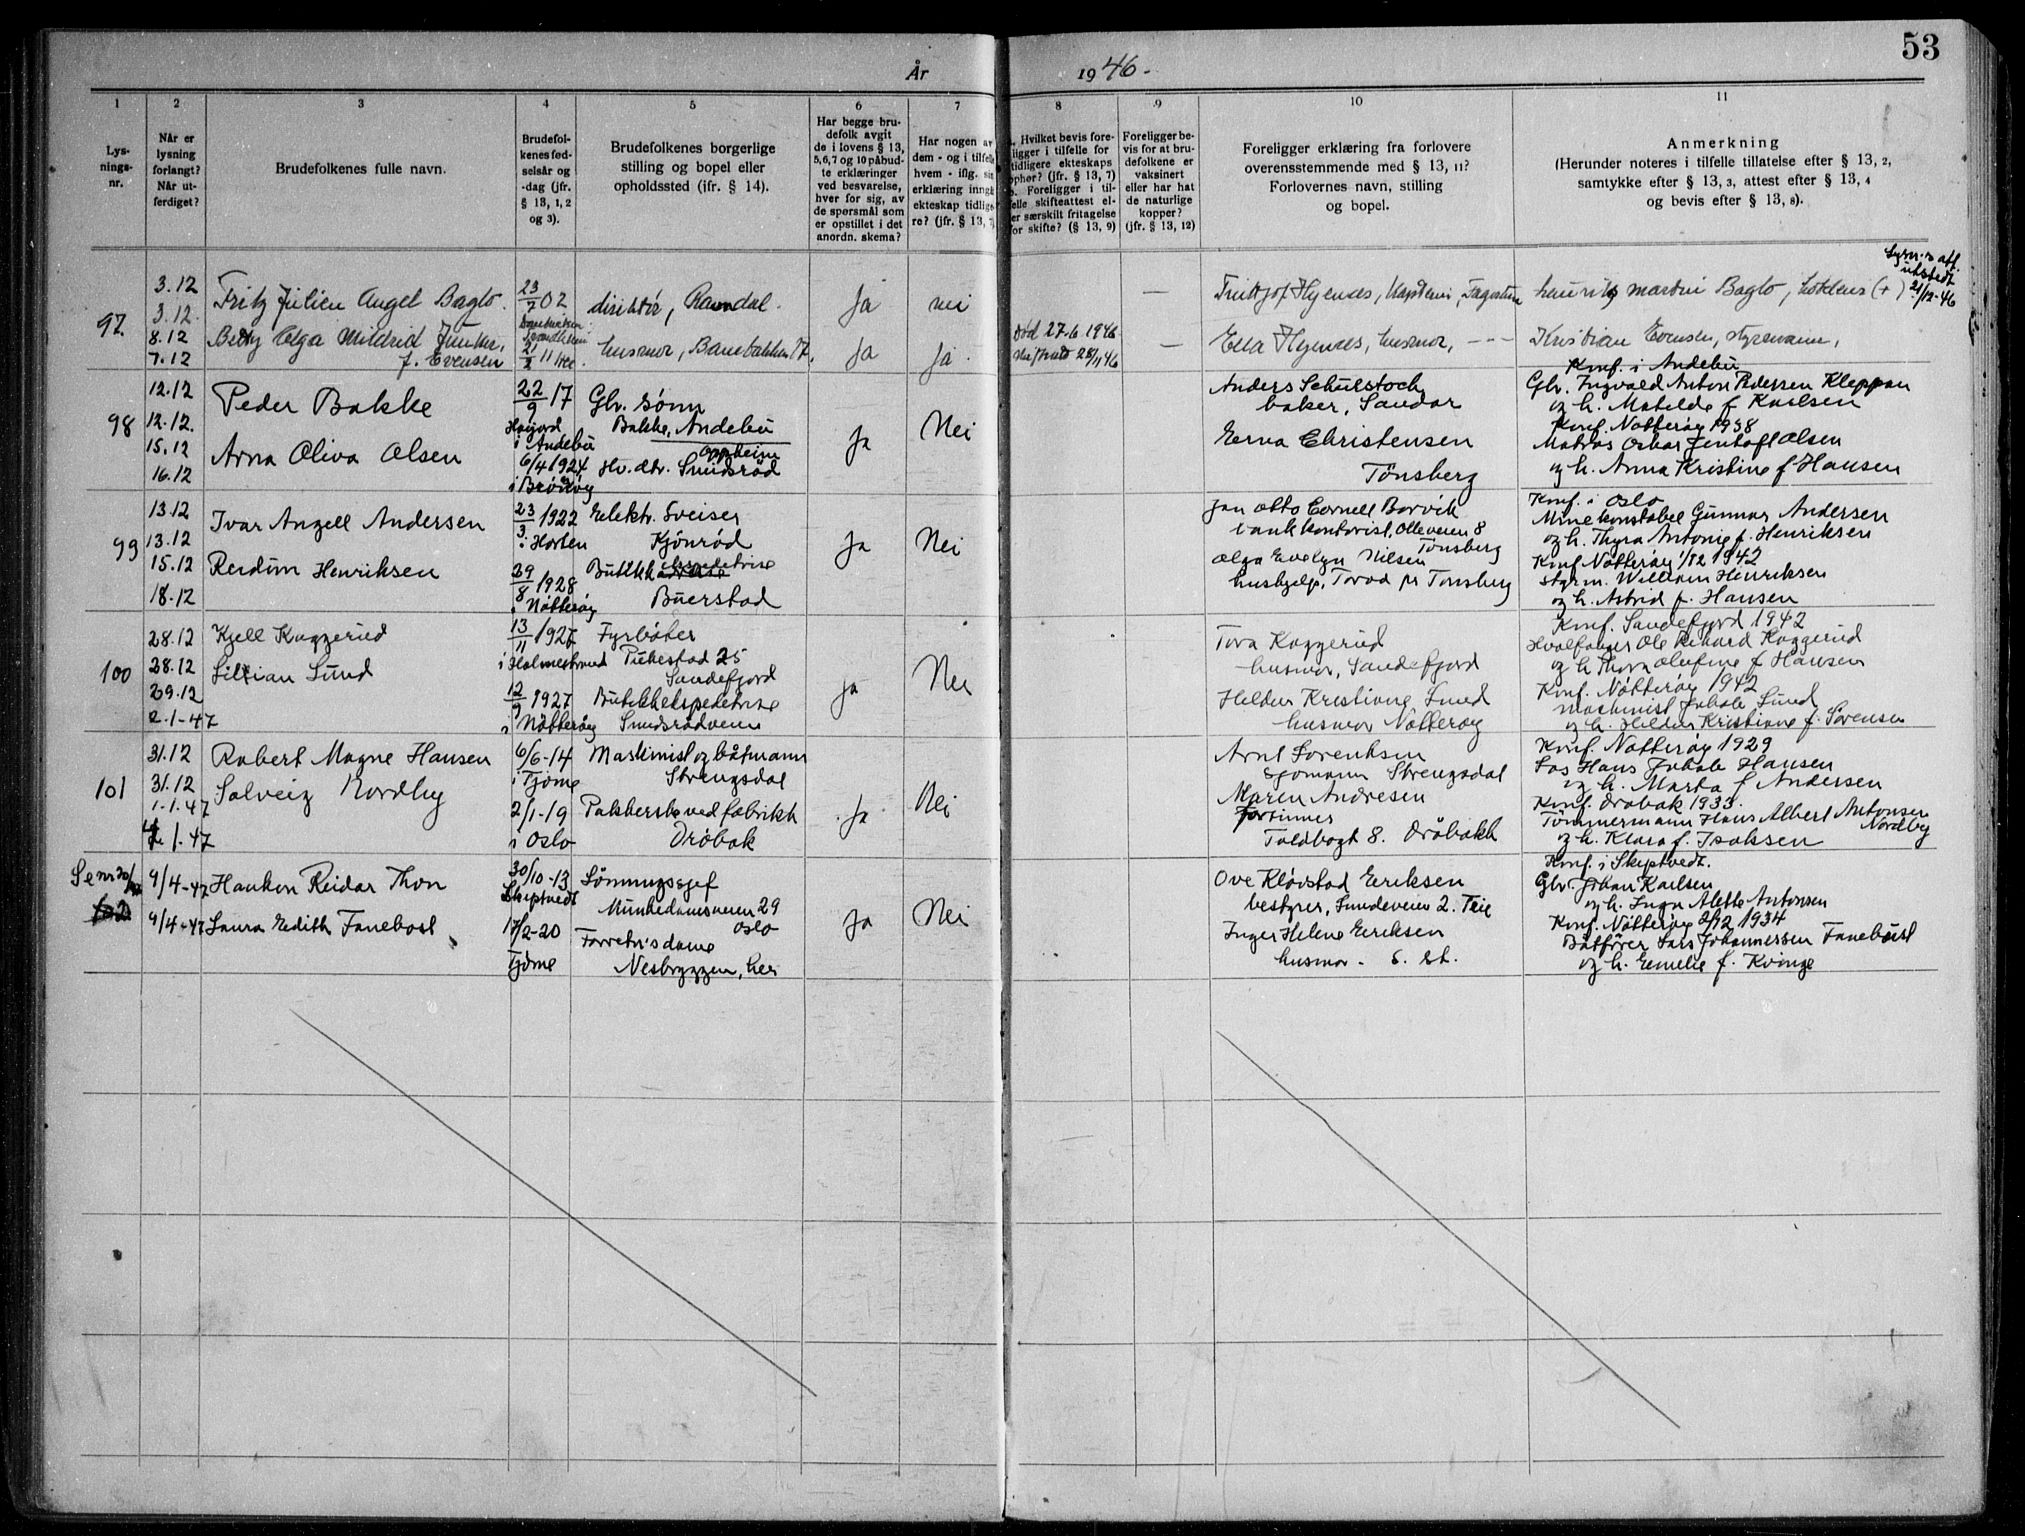 53
År 1946.
1 2 3 4 5 6 7 8 9 10 11
Lys-
nings-
nr.
Når er
lysning
forlangt?
Når ut-
ferdiget?
Brudefolkenes fulle navn.
Brudefol-
kenes fød-
selsår og
-dag (jfr.
§ 13, 1, 2
og 3).
Brudefolkenes borgerlige
stilling og bopel eller
opholdssted (jfr. § 14).
Har begge bru-
defolk avgit
de i lovens § 13,
5,6,7 og 10 påbud-
te erklæringer
ved besvarelse,
hver for sig, av
de spørsmål som
er opstillet i det
anordn. skema?
Har nogen av
dem - og i tilfelle
hvem - iflg. sin
erklæring inngå
ekteskap tidlige
re? (jfr. § 13, 7)
Hvilket bevis fore-
ligger i tilfelle for
tidligere ekteskaps
ophør? (jfr. § 13, 7)
Foreligger i til-
felle skifteattest el-
er særskilt fritagelse
for skifte? (§ 13, 9)
Foreligger be-
vis for at bru-
defolkene er
vaksinert
eller har hat
de naturlige
kopper?
(jfr. § 13, 12)
Foreligger erklæring fra forlovere
overensstemmende med § 13, 11?
Forlovernes navn, stilling
og bopel.
Anmerkning
(Herunder noteres i tilfelle tillatelse efter § 13, 2,
samtykke efter § 13, 3, attest efter § 13, 4
og bevis efter § 13, 8).
97.
3.12
3.12.
8.12
7.12
Fritz Julien Angel Bagto.
Betzy Olga Mildrid Junker,
f. Evensen
23/7 02
2/2 11
direktør, Ramdal.
husmor, Banebakken 17.
Ja
ja
nei
ja.
Død 27.6 1946
28/11 46
—
—
Fridtjof Hjenaes, kaptein,
Ella Hjenaes, husmor, - - -
Henrik Martin Bagto,
(+)
utstedt
21/12-46
Kristian Evensen, styrmann,
98
12.12
12.12.
15.12
16.12
Peder Bakke
Arna Oliva Olsen
22/9 17
Høijord
i Andebu
6/4 1924
Gbr. sønn
Bakke, Andebu
Oppheim
Hv. dtr. Smidsrød
Ja
Nei
Anders Schulstock
baker, Sandar
Erna Christensen
Tønsberg
Konf. i Andebu
Gbr. Ingvald Anton Pedersen Kleppan
og h. Matilde f Karlsen
Konf. Nøtterøy 1938
Matros Oskar Jentoft Olsen
og h. Anna Kristine f. Hansen
99
13.12
13.12
15.12
18.12
Ivar Angell Andersen
Reidun Henriksen
23/3 1922
i Horten
29/8 1928
i Nøtterøy
Elektr. Sveiser
Kjønrød
Butikkekspeditrise
Buerstad
Ja
Nei
Jan Otto Cornell Borvik
bankkontorist, Olleveien 8
Tønsberg
Olga Evelyn Nilsen
hushjelp, Torød pr Tønsberg
Konf. i Oslo
Minekonstabel Gunnar Andersen
og h. Thyra Antonie f. Henriksen
Konf. Nøtterøy 1/12 1942
styrm. William Henriksen
og h. Astrid f. Hansen
100
28.12
28.12
29.12
2.1-47
Kjell Kaggerud
Lillian Lund
13/11 1927
i Holmestrand
12/9 1927
i Nøtterøy
Fyrbøter
Pukestad 25
Sandefjord
Butikkekspeditrise
Smidsrødveien
Ja
Nei
Tora Kaggerud
husmor, Sandefjord
Heldur Kristiane Lund
husmor Nøtterøy
Konf. Sandefjord 1942
Hvalfanger Ole Rikard Kaggerud
og h Thora Olufine f Hansen
Konf. Nøtterøy 1942
Maskinist Jakob Lund
og h. Heldur Kristiane f. Sørensen
101
31.12
31.12
1.1.47
4.1.47
Robert Magne Hansen
Solveig Nordby
6/6-14
i Tjøme
2/1-19
i Oslo
Maskinist og båtmann
Strengsdal
Pakkerske ved fabrikk
Drøbak
Ja
Nei
Arnt Sørensen
Sjømann Strengsdal
Maren Andresen
Toldbogt 8. Drøbakk
Konf. Nøtterøy 1929
Los Hans Jakob Hansen
og h. Marta f Andersen
Konf. Drøbak 1933.
Tømmermann Hans Albert Antonsen
Nordby
og h. Klara f. Isaksen
Se nr 20/47
102
9/4-47
9/4-47
Haakon Reidar Thon
Laura Edith Fanebost
30/10-13
Skiptvedt
17/2-20
Tjøme
Lønningssjef
Munkedamsveien 29
Oslo
Forretn's dame
Nesbryggen, her
Ja
Nei
Ove Kløvstad Eriksen
bestyrer, Sundeveien 2. Teie
Inger Helene Eriksen
husmor - s. st.
Konf. i Skiptvedt.
Gbr. Johan Karlsen
og h. Inga Alette Antonsen
Konf. Nøtterøy 2/12 1934
Båtfører Lars Johannessen Fanebust
og h. Emelie f. Kvinge